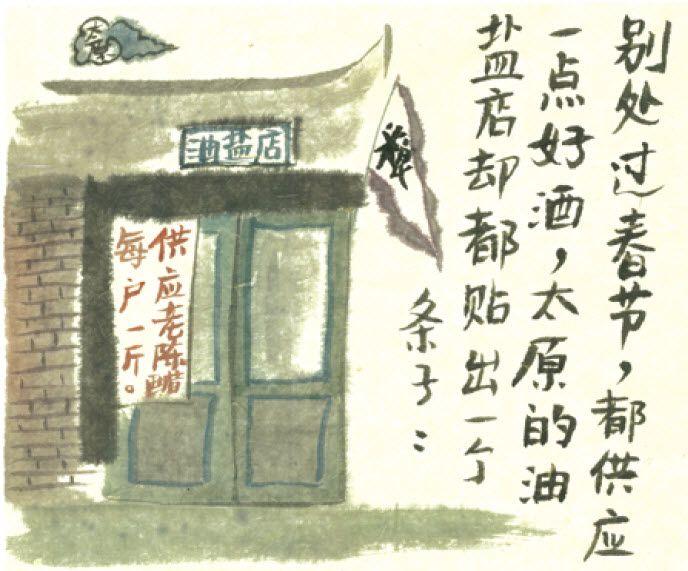 别处过春节，都供应
一点好酒，太原的油
盐店却都贴出一个
条子：
太原
油盐店
供应老陈醋
每户一斤。